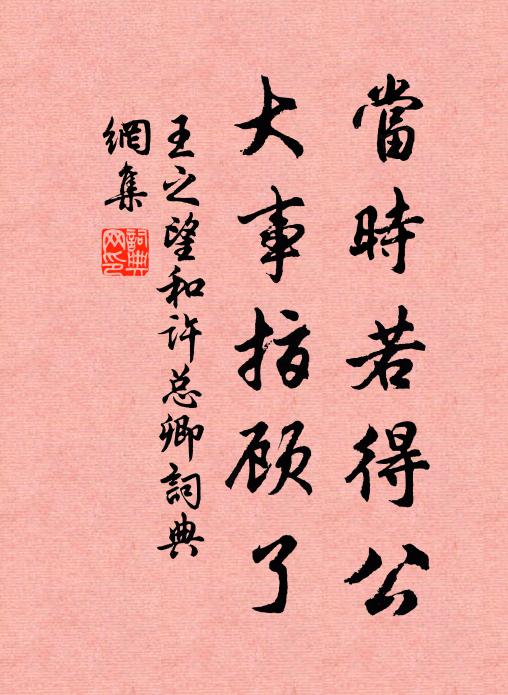 當時若得公
大事指顧了
王之望和许总卿詞典
網集
詞典
网印